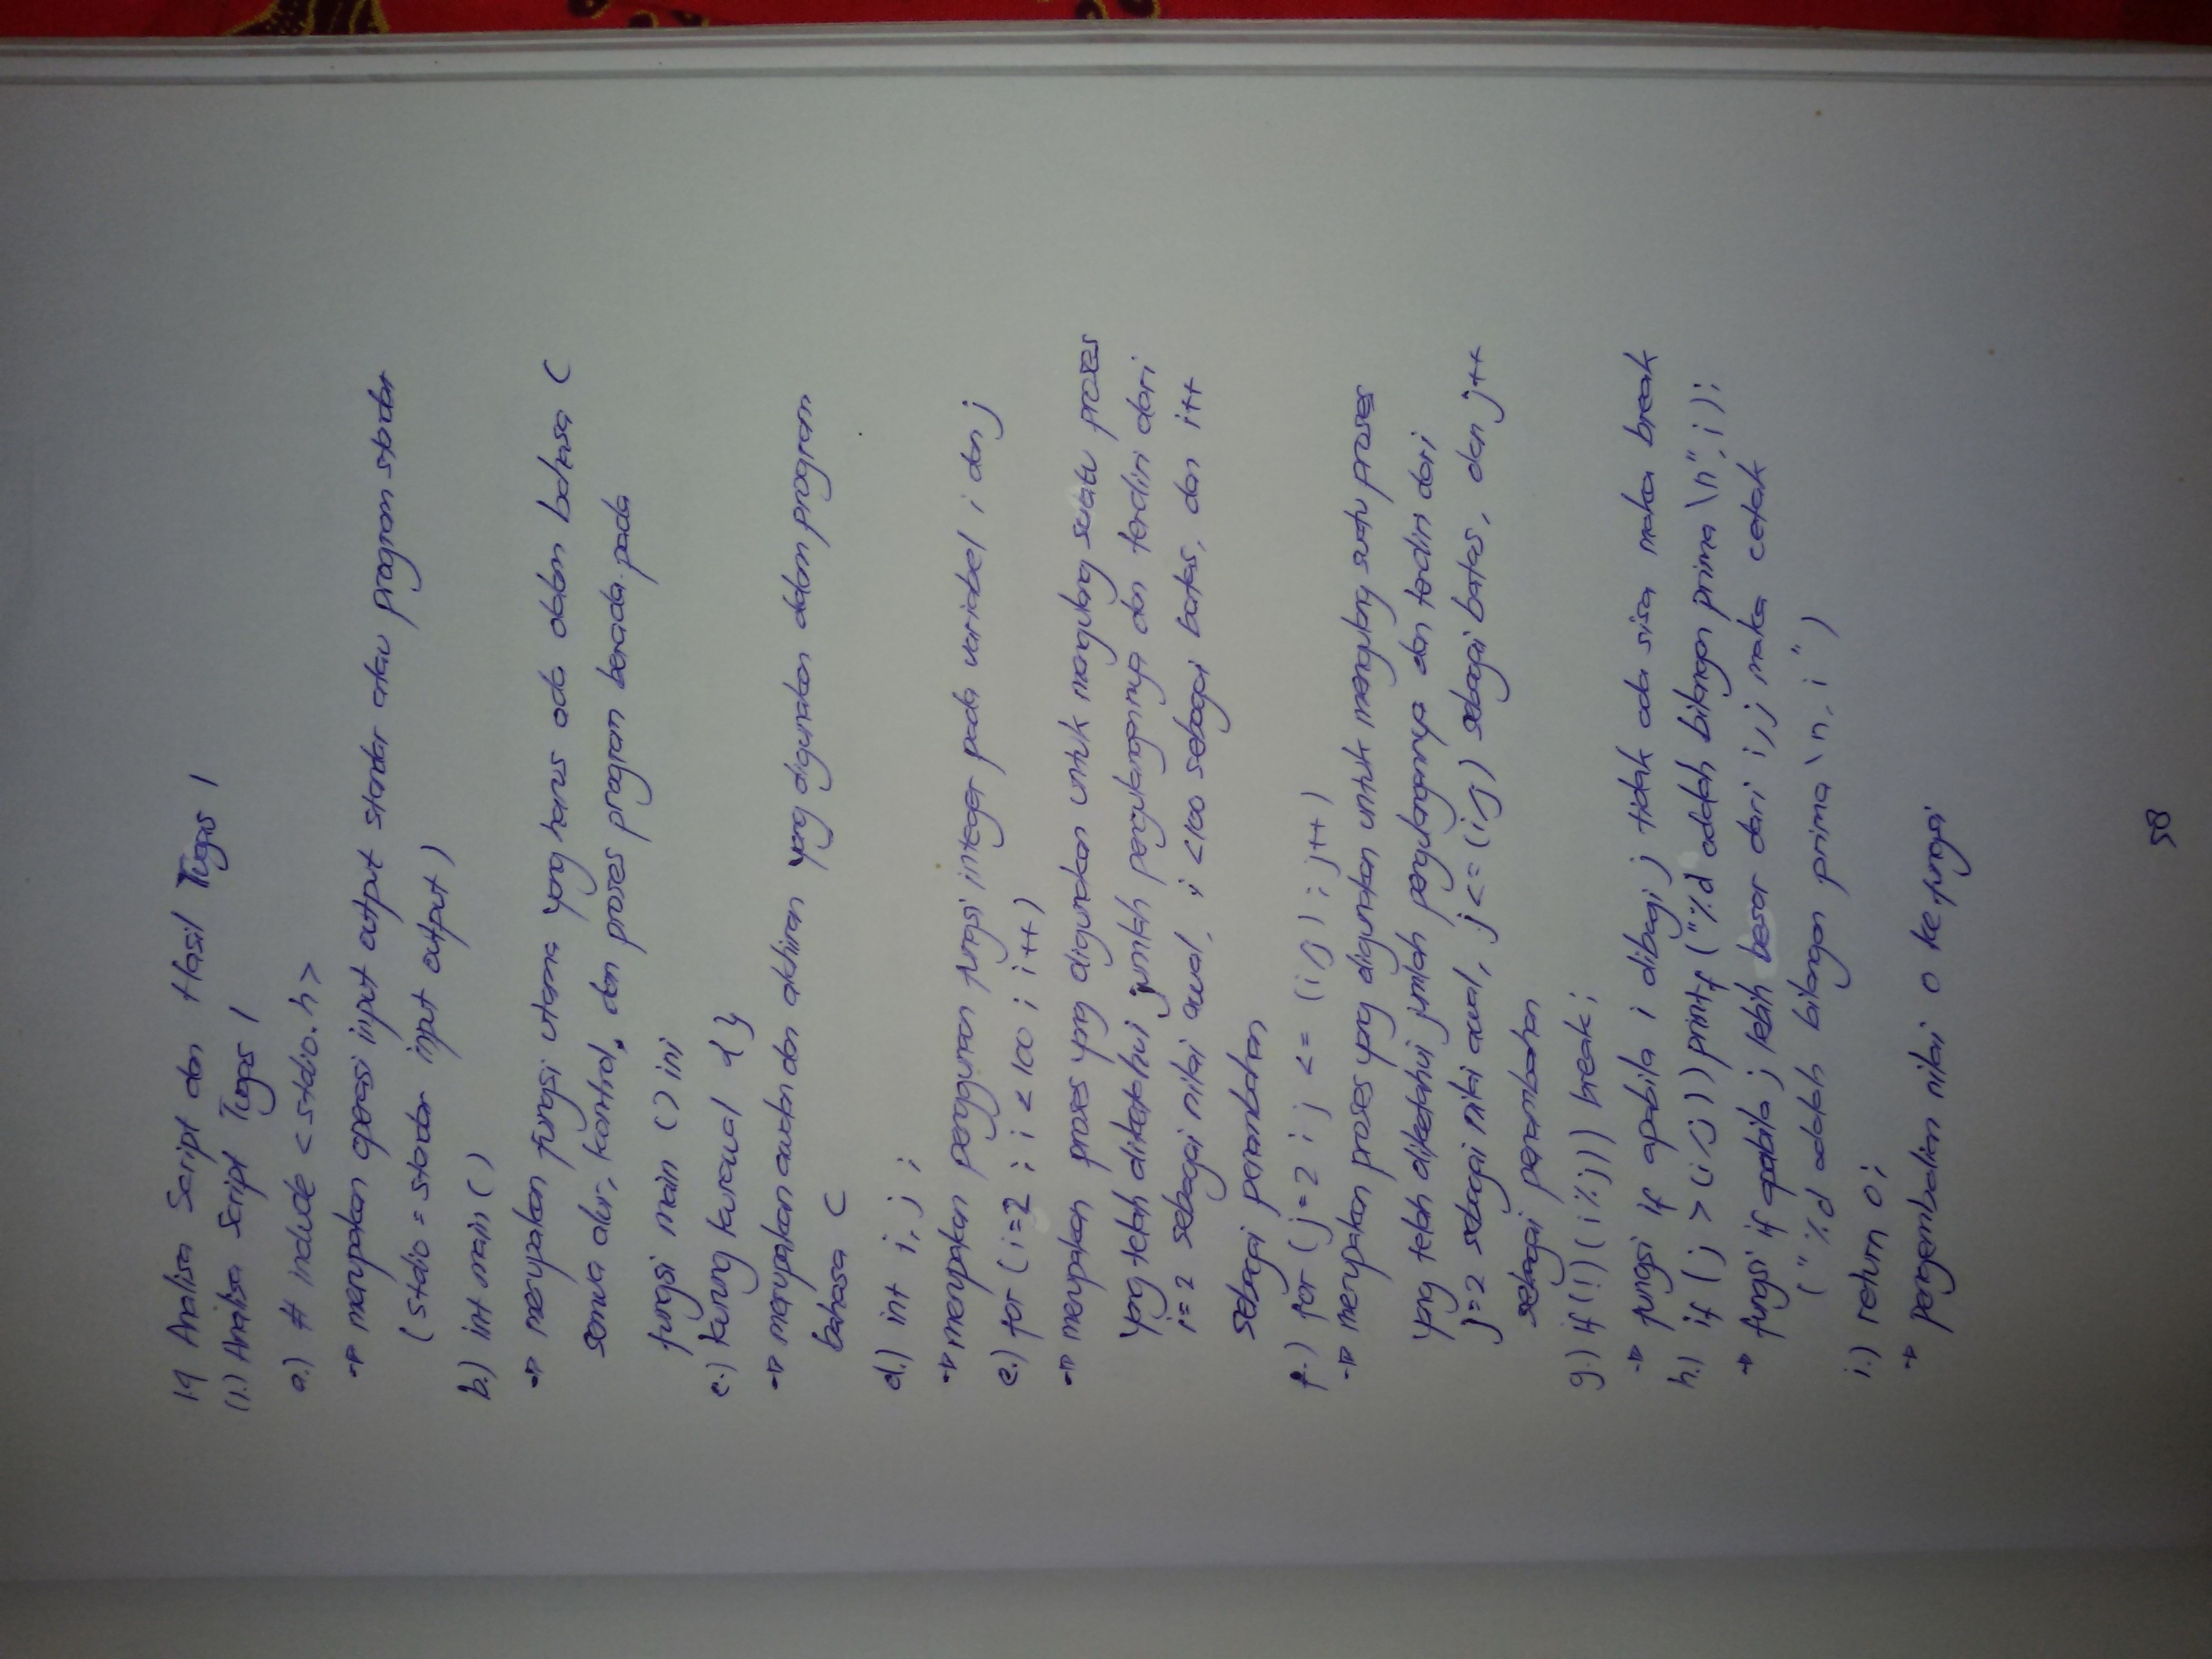 1.9 Analisa Script dan Hasil Tugas 1
(1.) Analisa Script Tugas 1
a.) # include <stdio.h>
→ merupakan operasi input output standar atau program standar
(stdio = standar input output)
b.) int main ( )
→ merupakan fungsi utama yang harus ada dalam bahasa C
semua alur, kontrol, dan proses program berada pada
fungsi main () ini
c.) kurung kurawal { }
→ merupakan awalan dan akhiran yang digunakan dalam program
bahasa C
d.) int i, j ;
→ merupakan penggunan fungsi integer pada variabel i dan j
e.) for (i=2 ; i < 100 ; i++)
→ merupakan proses yang digunakan untuk mengulang suatu proses
yang telah diketahui jumlah pengulangannya dan terdiri dari
i=2 sebagai nilai awal, i <100 sebagai batas, dan i++
sebagai penambahan
f.) for (j=2 ; j <= (i/j) ; j++)
→ merupakan proses yang digunakan untuk mengulang suatu proses
yang telah diketahui jumlah pengulangannya dan terdiri dari
j=2 sebagai nilai awal, j <= (i/j) sebagai batas, dan j++
sebagai penambahan
g.) if(!)(i%j)) break;
→ fungsi if apabila i dibagi j tidak ada sisa maka break
h.) if (j > (i/j)) printf ("%d adalah bilangan prima \n", i);
→ fungsi if apabila j lebih besar dari i/j maka cetak
("%d adalah bilangan prima \n, i")
i.) return 0;
→ pengembalian nilai 0 ke fungsi
58